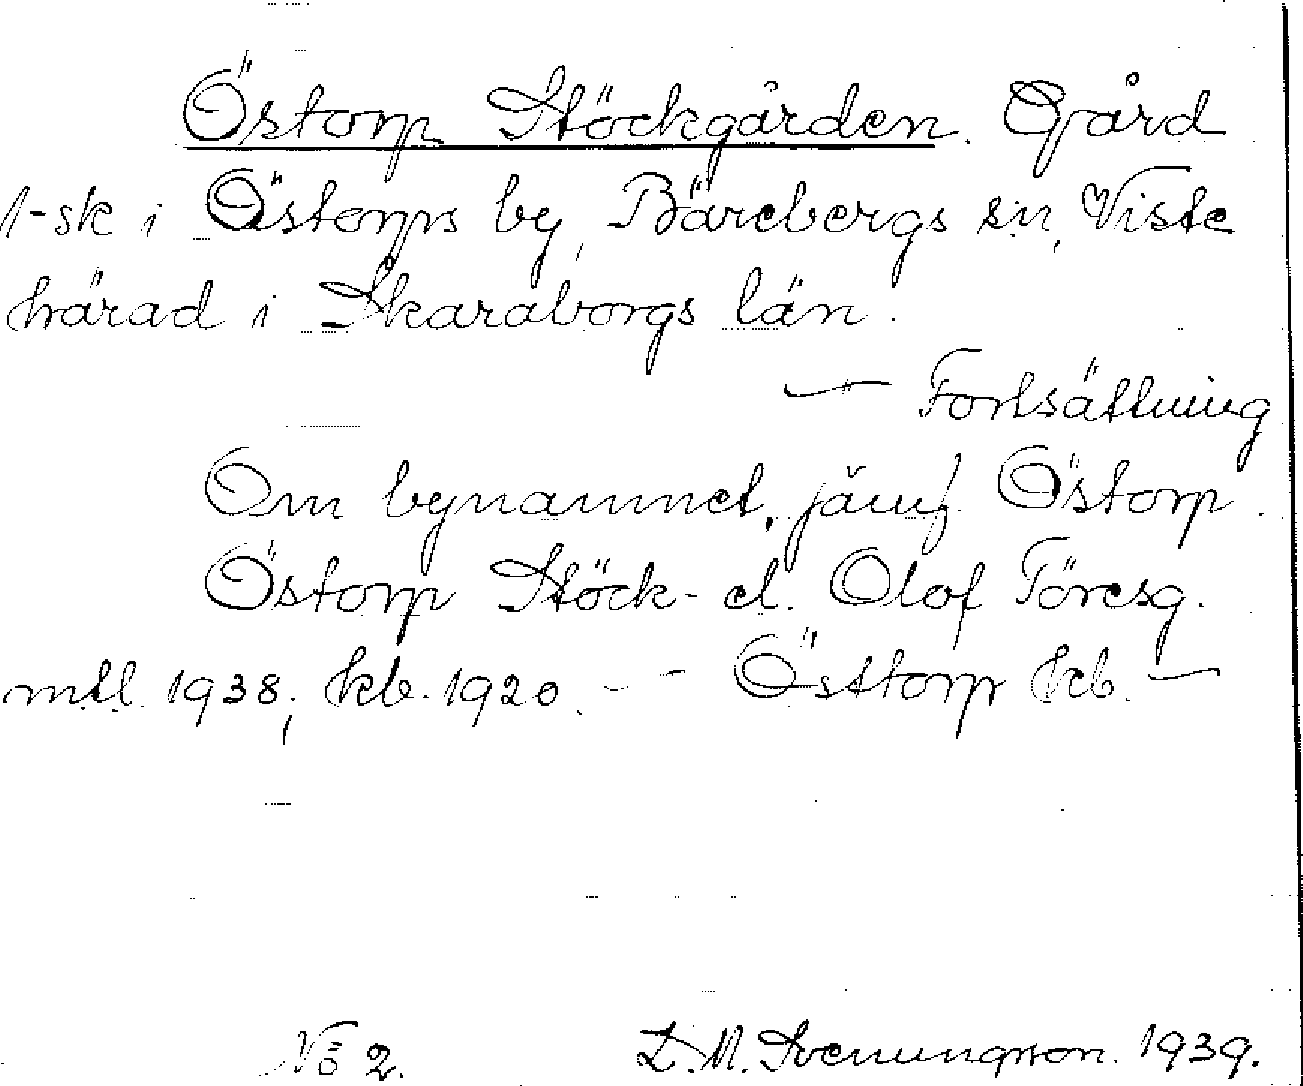 Östorp Stöckgården. Gård
1-sk i Östorps by, Bärebergs sn, Viste
härad i Skaraborgs län.
— Fortsättning
Om bynamnet, jämf. Östorp.
Östorp Stöck- el. Olof Töresg.
mtl. 1938; kb. 1920. - - Östtorp kb. —
No 2. D. M. Svenungsson. 1939.